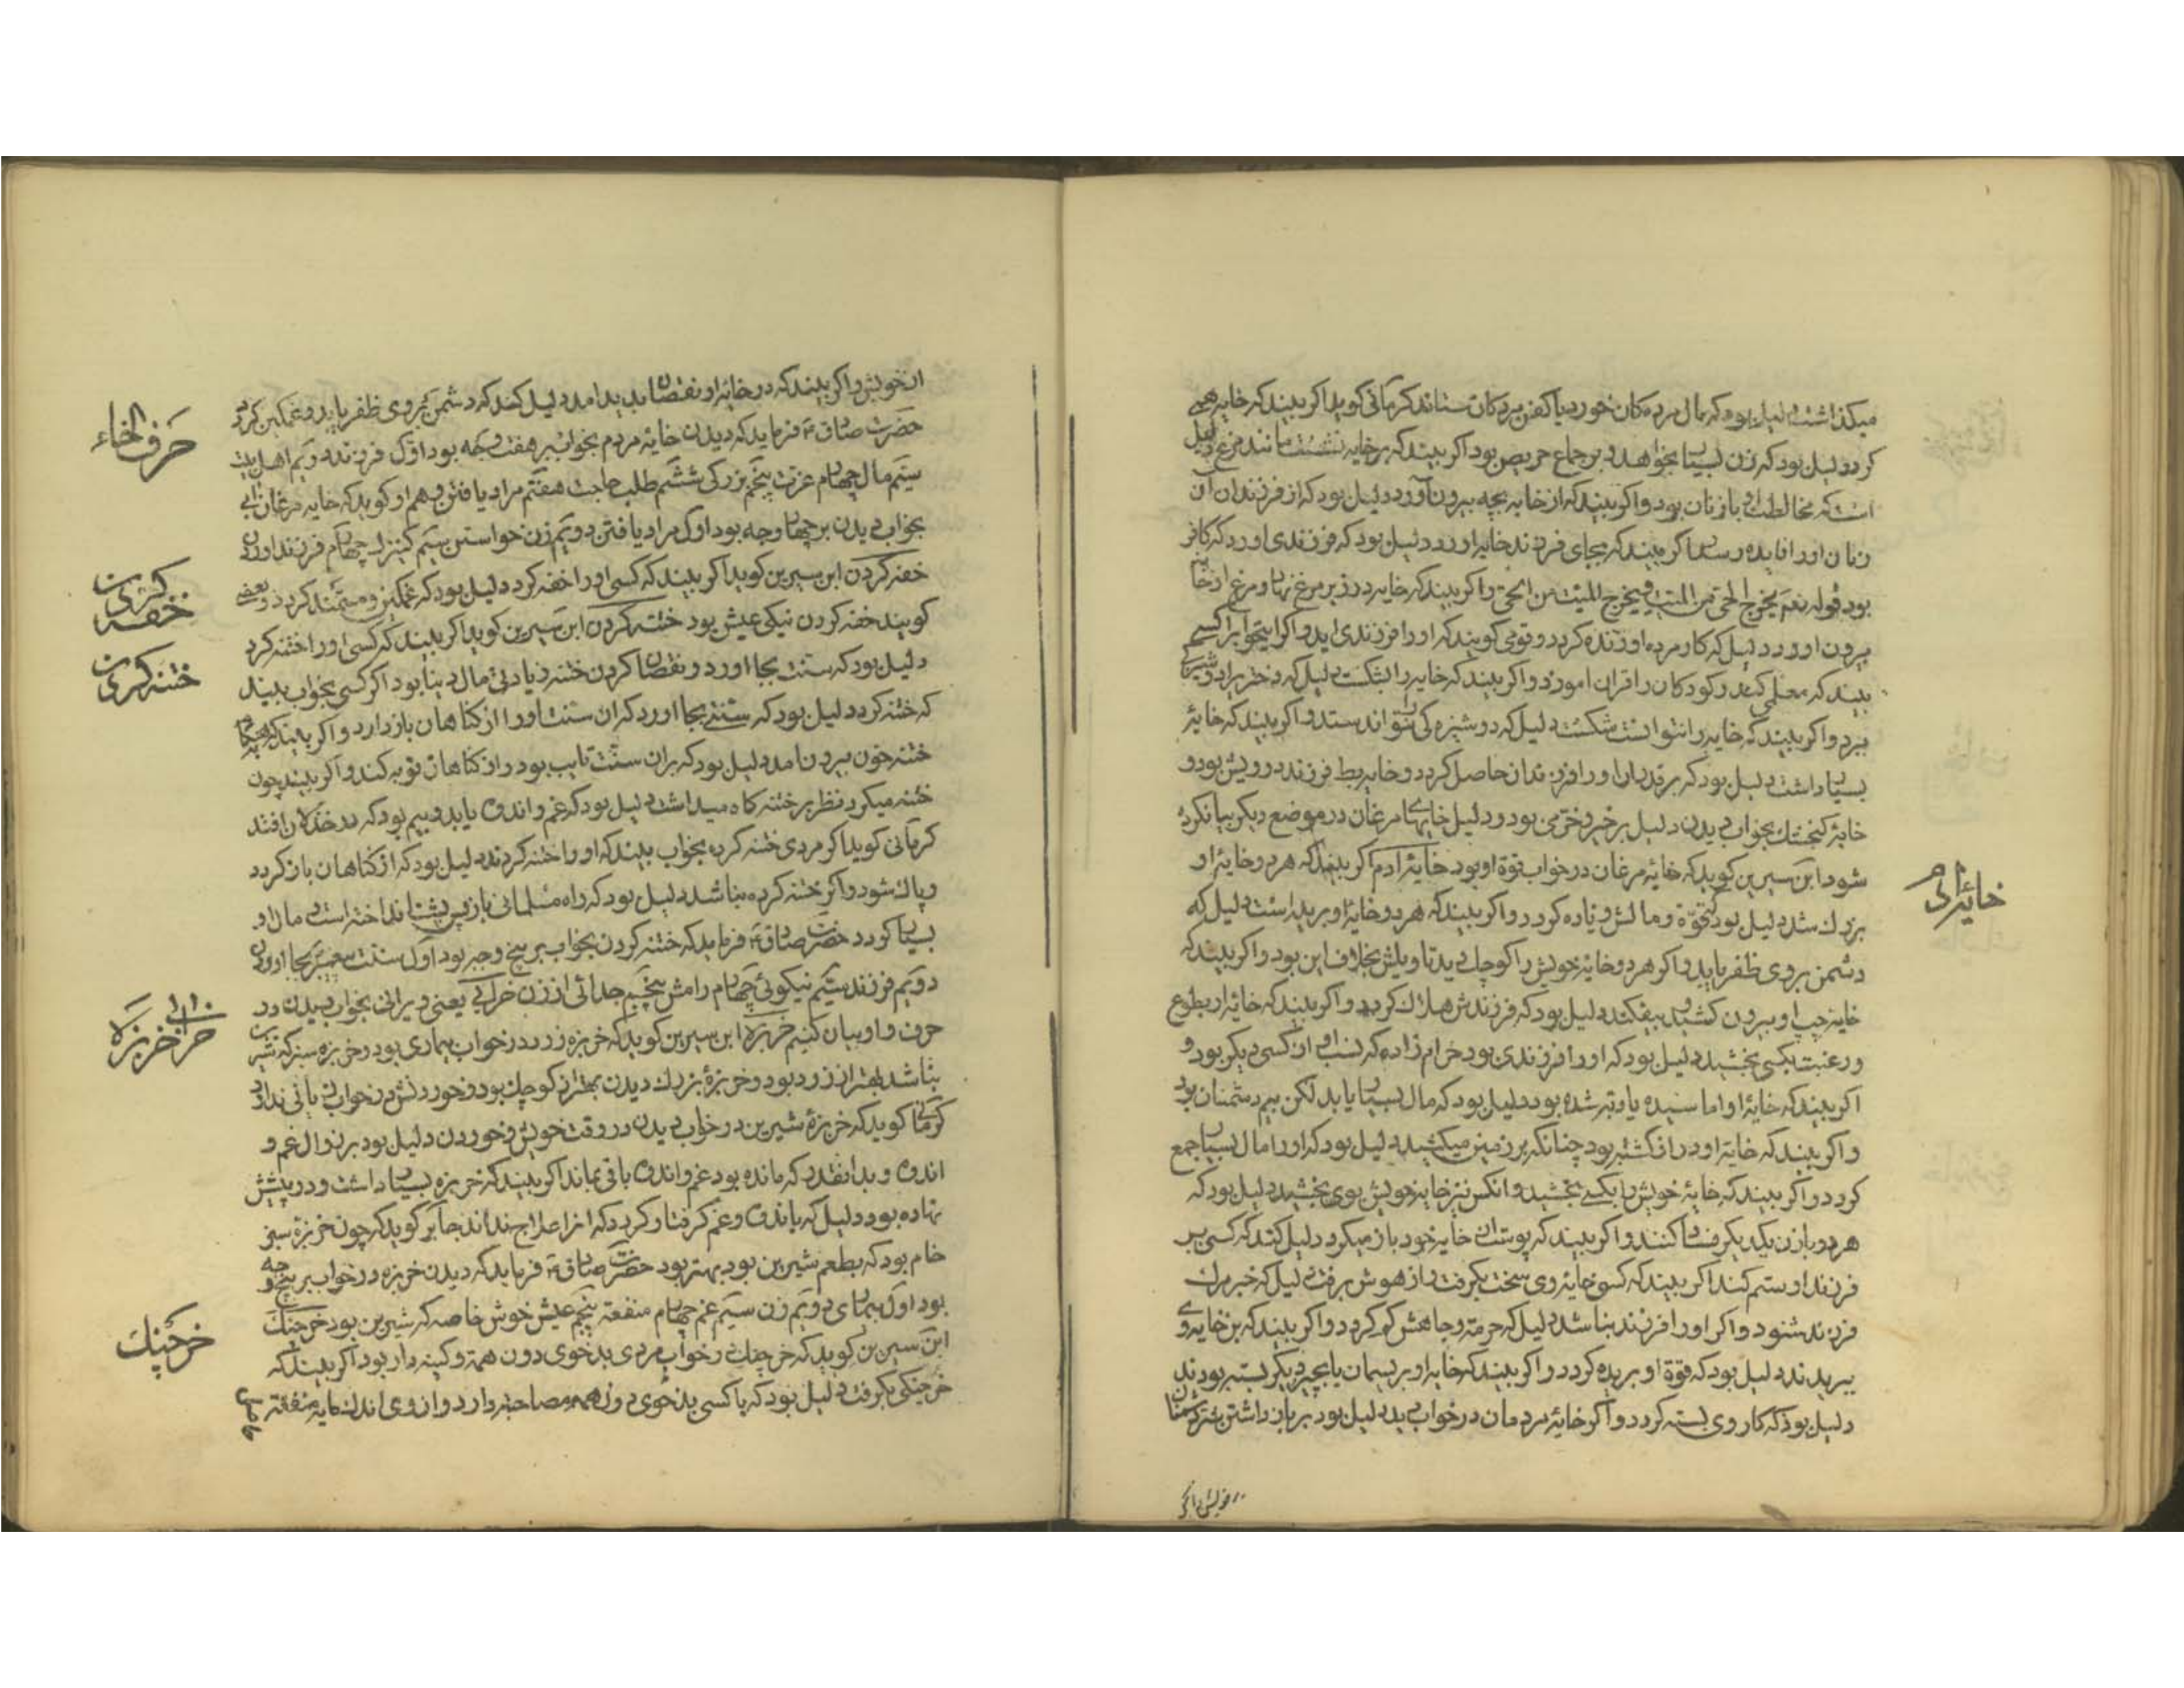 میکذاشت دلیل بود که مال مرده کان خورد یا کفن مردکان ستاند کرمانی کوید اکر بیند که خایه همی
کرد دلیل بود که زن بسیار بخواهد و بر جماع حریص بود اکر بیند که بر خایه نشست مانند مرغ دلیل
است که مخالطت او با زنان بود و اکر بیند که از خایه بچه بیرون آورد دلیل بود که از فرزندان آن
زنان او را فایده رسد اکر بیند که بجای فرزند خایه اورد دلیل بود که فرزندی اورد که کافر
بود قوله نعم یخرج الحی من المیت و یخرج المیت من الحی و اکر بیند که خایه در زیر مرغ نهاد و مرغ از خایه
بیرون اورد دلیل که کار مرده او زنده کردد و قومی کویند که او را فرزندی اید و اکر اینخواب را کسی
بیند که معلمی کند و کودکان را قران اموزد و اکر بیند که خایه را بشکست دلیل که دختر را دوشیزکی
ببرد و اکر بیند که خایه را نتوانست شکست دلیل که دوشیزه کی نتواند ستد و اکر بیند که خایهٔ
بسیار داشت دلیل بود که بر قدر ان او را فرزندان حاصل کردد و خایه بط فرزند درویش بود و
خایهٔ کنجشک بخواب دیدن دلیل بر خیر و خرمی بود و دلیل خایهای مرغان در موضع دیکر بیان کرده
شود ابن سیرین کوید که خایهٔ مرغان در خواب قوة او بود خایهٔ آدم اکر بیند که هر دو خایهٔ او
بزرک شد دلیل بود که قوة و مالش زیاده کردد و اکر بیند که هر دو خایهٔ او بریده است دلیل که
دشمن بر وی ظفر یابد و اکر هر دو خایهٔ خویش را کوچک دید تاویلش بخلاف این بود و اکر بیند که
خایهٔ چپ او بیرون کشید و بیفکند دلیل بود که فرزندش هلاک کردد و اکر بیند که خایهٔ او بطوع
و رغبت بکسی بخشید دلیل بود که او را فرزندی بود حرام زاده که نسب او از کسی دیکر بود و
اکر بیند که خایهٔ او اماسیده یا دبه شده بود دلیل بود که مال بسیار یابد لکن بیم دشمنان بود
و اکر بیند که خایهٔ او دراز کشته بود چنانکه بر زمین میکشید دلیل بود که او را مال بسیار جمع
کردد و اکر بیند که خایهٔ خویش را بکسی بخشید و انکس نیز خایهٔ خویش بوی بخشید دلیل بود که
هر دو با زن یکدیکر فساد کنند و اکر بیند که پوست از خایهٔ خود باز میکرد دلیل کند که کسی بر
فرزند او ستم کند اکر بیند که کسی خایهٔ وی سخت بکرفت و از هوش برفت دلیل که خبر مرک
فرزند شنود و اکر او را فرزند نباشد دلیل که حرمة و جاهش کم کردد و اکر بیند که بن خایهٔ وی
ببریدند دلیل بود که قوة او بریده کردد و اکر بیند که خایه او بریسمان یا بچیز دیکر بسته بودند
دلیل بود که کار وی بسته کردد و اکر خایهٔ مردمان در خواب دید دلیل بود بر باز داشتن شر دشمنان
خایهٔ ادم
خویش و اکر
از خویش و اکر بیند که در خایهٔ او نقصان پدید امد دلیل کند که دشمن بر وی ظفر یابد و غمکین کردد
حضرت صادق ع فرماید که دیدن خایهٔ مردم بخواب بر هفت وجه بود اول فرزند دویم اهل بیت
سیم مال چهارم عزت پنجم بزرکی ششم طلب حاجت هفتم مراد یافتن و هم او کوید که خایه مرغان
بخواب دیدن بر چهار وجه بود اول مراد یافتن دویم زن خواستن سیم کنیزک چهارم فرزند اوردن
خفه کردن ابن سیرین کوید اکر بیند که کسی او را خفه کرد دلیل بود که غمکین و مستمند کردد و بعضی
کویند خفه کردن نیکی عیش بود ختنه کردن ابن سیرین کوید اکر بیند که کسی او را ختنه کرد
دلیل بود که سنت بجا اورد و نقصان کردن ختنه زیادتی مال دنیا بود اکر کسی بخواب بیند
که ختنه کرد دلیل بود که سنتی بجا اورد که ان سنت او را از کناهان باز دارد و اکر بیند که بهنکام
ختنه خون بیرون امد دلیل بود که بران سنت تایب بود و از کناهان توبه کند و اکر بیند چون
ختنه میکرد نظر بر ختنه کاه میداشت دلیل بود که غم و اندوه یابد و بیم بود که در خذلان افتد
کرمانی کوید اکر مردی ختنه کرده بخواب بیند که او را ختنه کردند دلیل بود که از کناهان باز کردد
و پاک شود و اکر ختنه کرده نباشد دلیل بود که راه مسلمانی باز پس پشت انداخته است و مال او
بسیار کردد حضرت صادق ع فرماید که ختنه کردن بخواب بر پنج وجه بود اول سنت پیغمبر بجا اوردن
دویم فرزند سیم نیکوئی چهارم رامش پنجم جدائی از زن خرابی یعنی ویرانی بخواب دیدن در
حرف واو بیان کنیم خربزه ابن سیرین کوید که خربزه زرد در خواب بیماری بود و خربزه سبز که شیرین
نباشد بهتر از زرد بود و خربزهٔ بزرک دیدن بهتر از کوچک بود و خوردنش در خواب زیانی ندارد
کرمانی کوید که خربزهٔ شیرین در خواب دیدن در وقت خویش و خوردن دلیل بود بر زوال غم و
اندوه و بدانقدر که مانده بود غم و اندوه باقی ماند اکر بیند که خربزه بسیار داشت و در پیش
نهاده بود دلیل که باندوه و غم کرفتار کردد که انرا علاج نداند جابر کوید که چون خربزهٔ سبز
خام بود که بطعم شیرین بود بهتر بود حضرت صادق ع فرماید که دیدن خربزه در خواب بر پنج وجه
بود اول بیماری دویم زن سیم غم چهارم منفعة پنجم عیش خوش خاصه که شیرین بود خرچنک
ابن سیرین کوید که خرچنک در خواب مردی بدخوی دون همة و کینه دار بود اکر بیند که
خرچنکی بکرفت دلیل بود که با کسی بدخوی دون همه مصاحبة دارد و از وی اندک مایه منفعة
حرف الخاء
خفه کردن
ختنه کردن
خرابی
خربزه
خرچنک